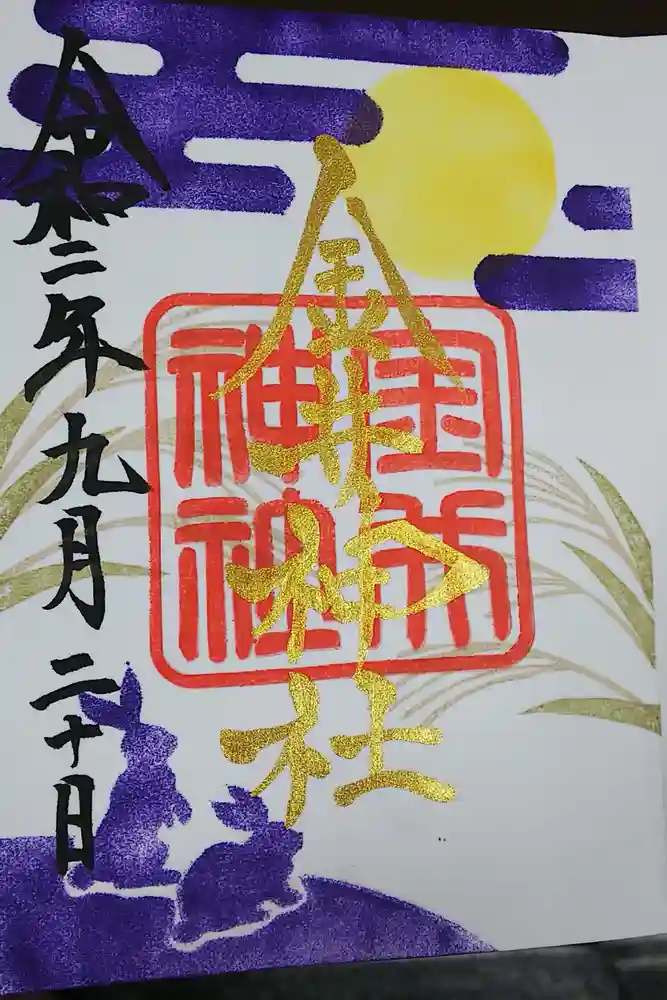 金井神社
金井
神社
令和二年九月二十日